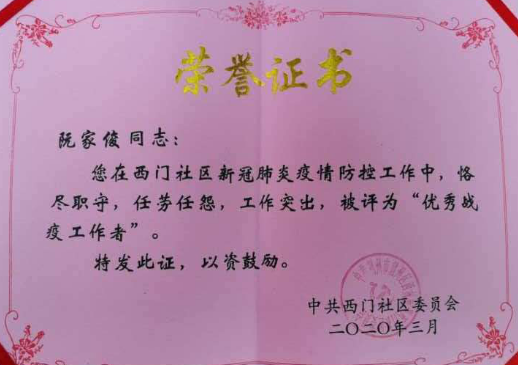 荣誉证书
阮家俊同志：
您在西门社区新冠肺炎疫情防控工作中，恪
尽职守，任劳任怨，工作突出，被评为“优秀战
疫工作者”。
特发此证，以资鼓励。
中共西门社区委员会
二〇二〇年三月